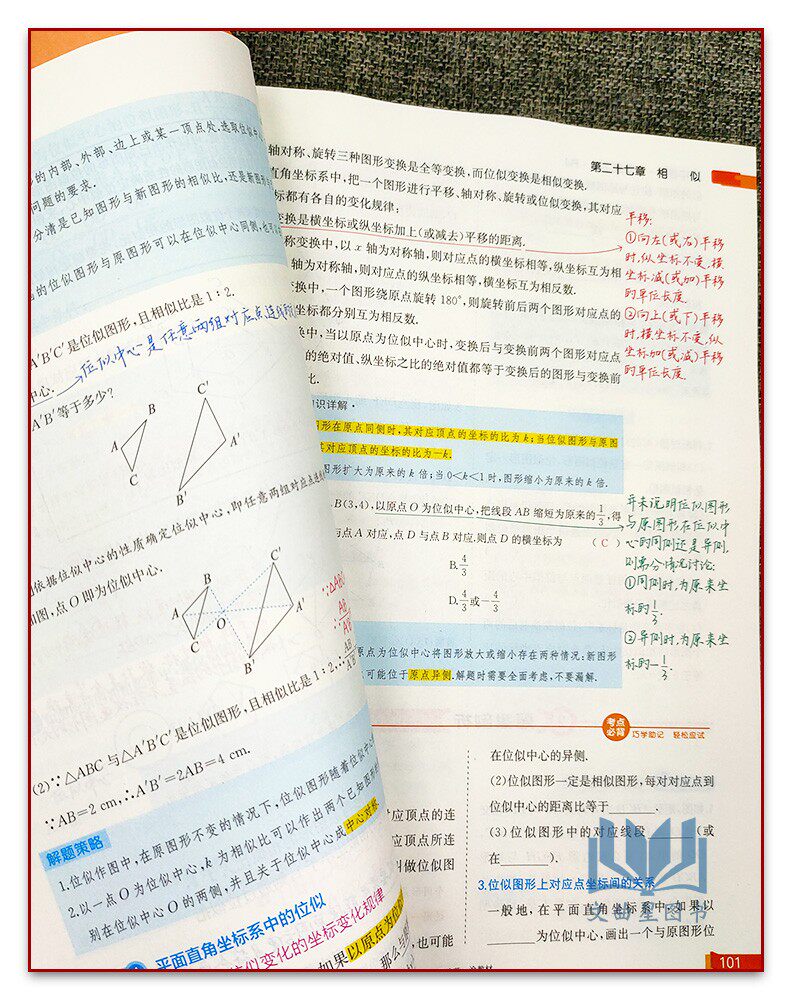 的内部、外部、边上或某一顶点处.选取位似中
问题的要求.
分清是已知图形与新图形的相似比,还是新图形与
的位似图形与原图形可以在位似中心同侧,也可
A′B′C′是位似图形,且相似比是1:2.
中心.
位似中心是任意两组对应点连线所
A′B′等于多少?
A
B
C
C′
A′
B′
依据位似中心的性质确定位似中心,即任意两组对应点连
如图,点O即为位似中心.
A
B
C
O
C′
A′
B′
∵△ABC
∴AB/A′B′
(2)∵△ABC与△A′B′C′是位似图形,且相似比是1:2,∴AB/A′B′
∵AB=2 cm,∴A′B′=2AB=4 cm.
解题策略
1.位似作图中,在原图形不变的情况下,位似图形随着位似中心
2.以一点O为位似中心,k为相似比可以作出两个已知图形的
别在位似中心O的两侧,并且关于位似中心成中心对称.
平面直角坐标系中的位似
位似变化的坐标变化规律
如果以原点为位似
那么与原
第二十七章 相 似
轴对称、旋转三种图形变换是全等变换,而位似变换是相似变换.
直角坐标系中,把一个图形进行平移、轴对称、旋转或位似变换,其对应
标都有各自的变化规律;
变换是横坐标或纵坐标加上(或减去)平移的距离.
称变换中,以x轴为对称轴,则对应点的横坐标相等,纵坐标互为相
轴为对称轴,则对应点的纵坐标相等,横坐标互为相反数.
变换中,一个图形绕原点旋转180°,则旋转前后两个图形对应点的
坐标都分别互为相反数.
换中,当以原点为位似中心时,变换后与变换前两个图形对应点
的绝对值、纵坐标之比的绝对值都等于变换后的图形与变换前
比.
平移:
①向左(或右)平移
时,纵坐标不变,横
坐标减(或加)平移
的单位长度.
②向上(或下)平移
时,横坐标不变,纵
坐标加(或减)平移
的单位长度.
知识详解
图形在原点同侧时,其对应顶点的坐标的比为k;当位似图形与原图
其对应顶点的坐标的比为-k.
图形扩大为原来的k倍;当0<k<1时,图形缩小为原来的k倍.
B(3,4),以原点O为位似中心,把线段AB缩短为原来的1/3,得
与点A对应,点D与点B对应.则点D的横坐标为 (C)
B.4/3
D.4/3或-4/3
并未说明位似图形
与原图形在位似中
心的同侧还是异侧,
则需分情况讨论:
①同侧时,为原来坐
标的1/3.
②异侧时,为原来坐
标的-1/3.
原点为位似中心将图形放大或缩小存在两种情况:新图形
可能位于原点异侧.解题时需要全面考虑,不要漏解.
考点
必背
巧学助记 轻松应试
对应顶点的连
应顶点所连
叫做位似图
,也可能
在位似中心的异侧.
(2)位似图形一定是相似图形,每对对应点到
位似中心的距离比等于________.
(3)位似图形中的对应线段________(或
在________).
3.位似图形上对应点坐标间的关系
一般地,在平面直角坐标系中,如果以
________为位似中心,画出一个与原图形位
文曲星图书
101